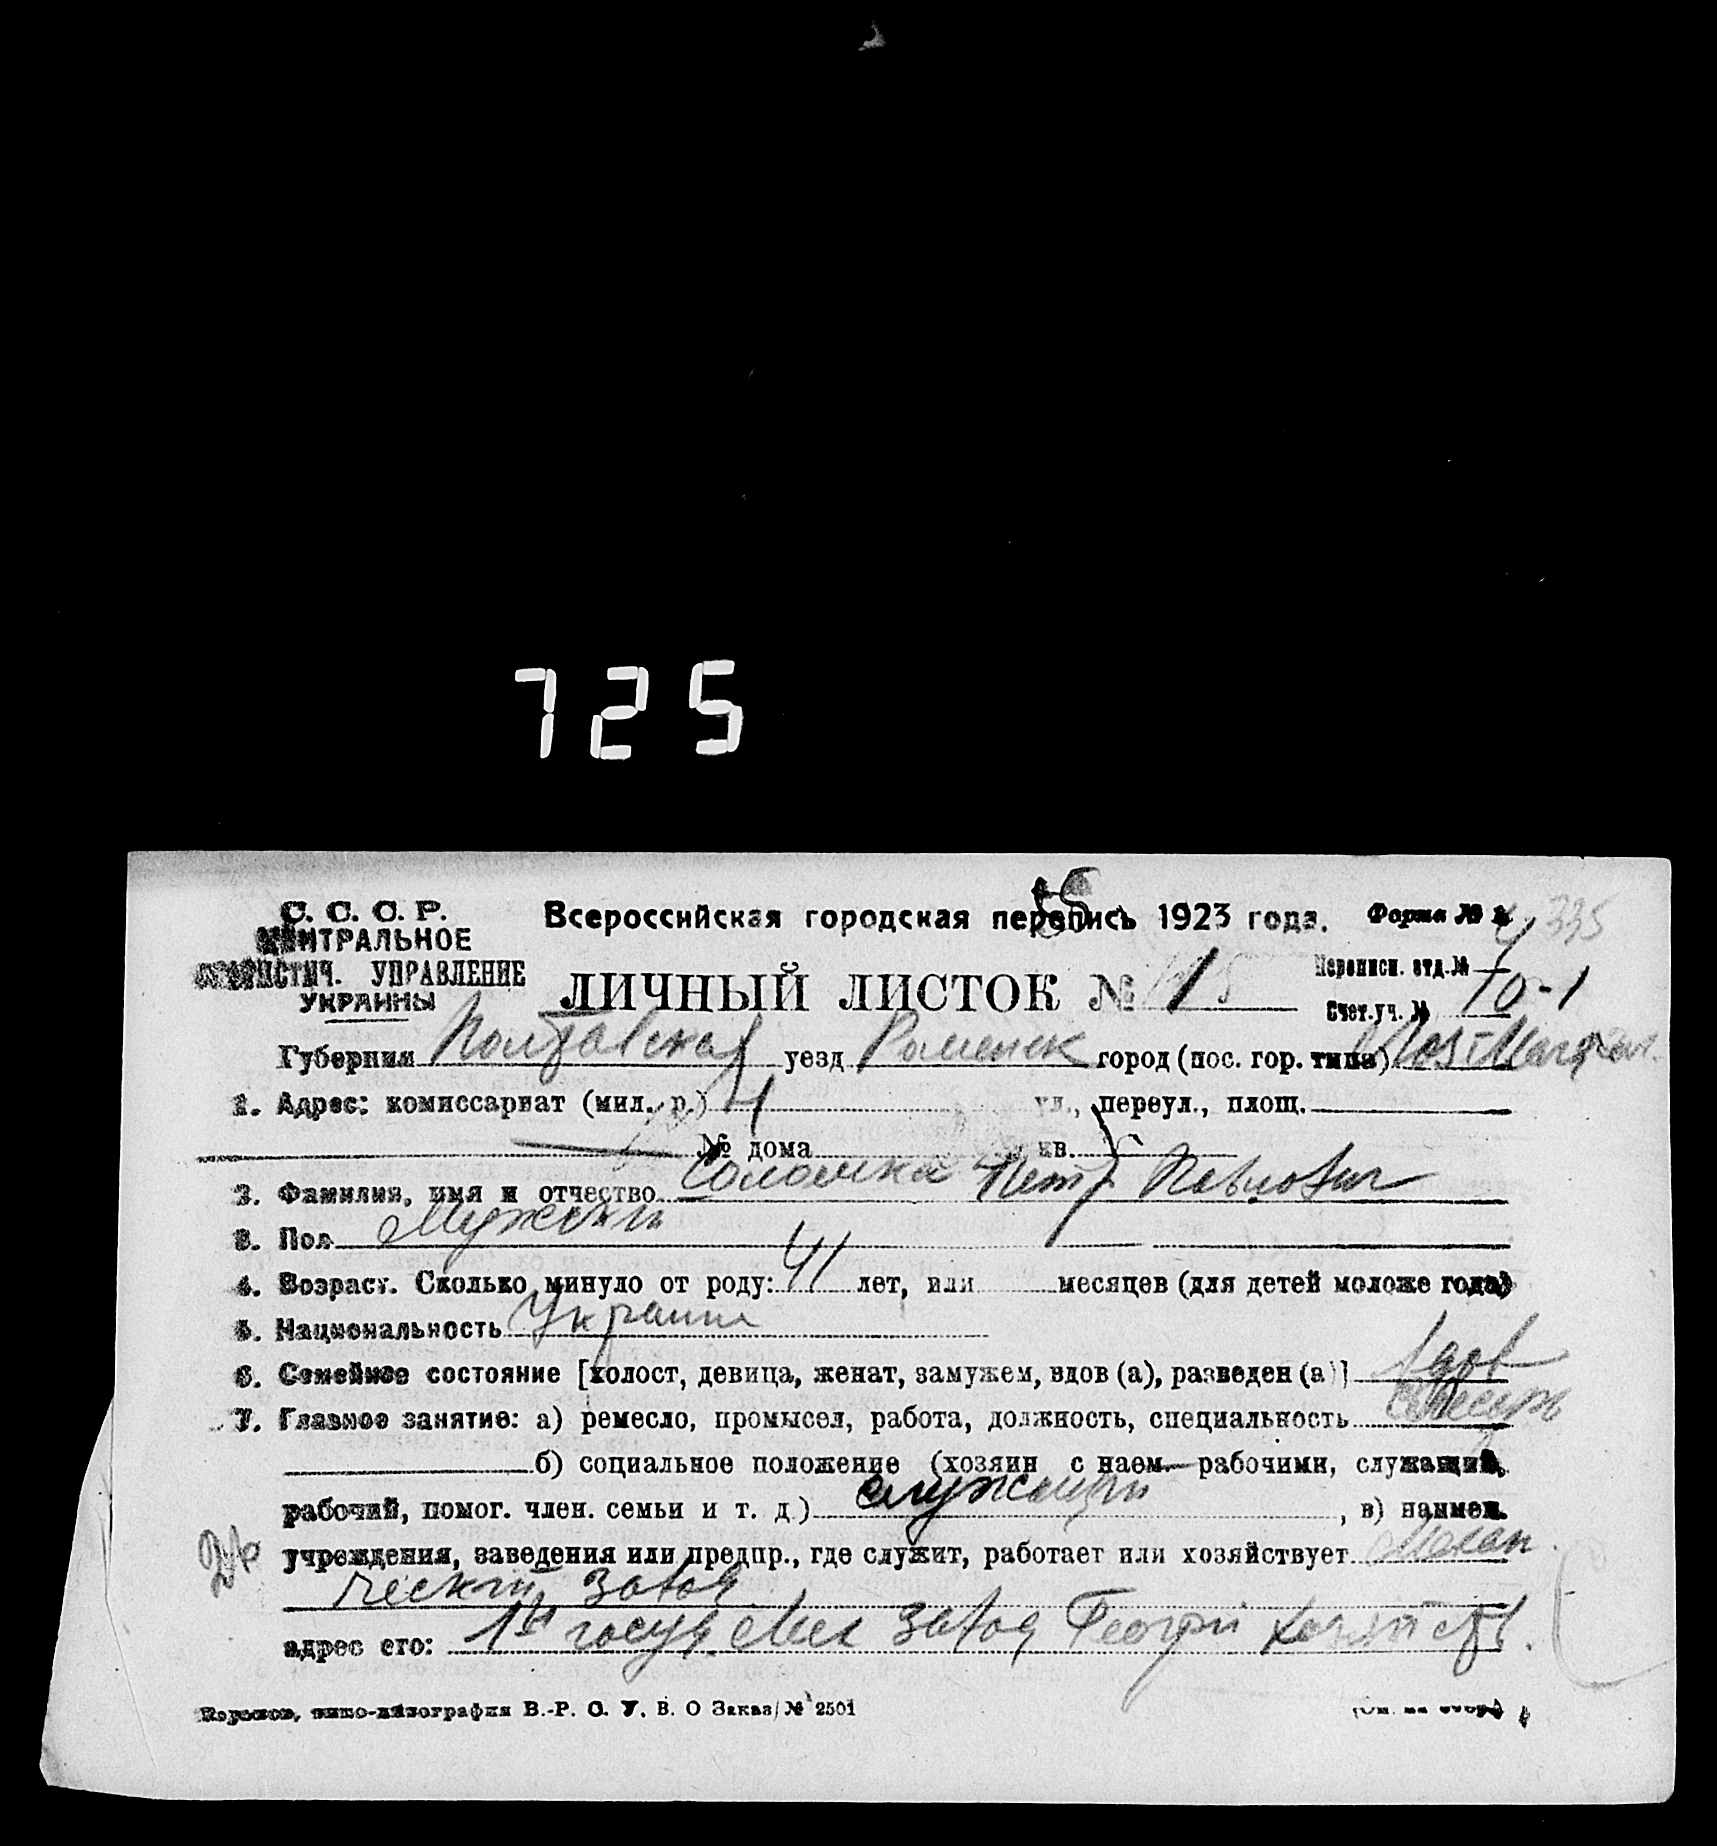 725
С. С. С. Р.
ЦЕНТРАЛЬНОЕ
СТАТИСТИЧ. УПРАВЛЕНИЕ
УКРАИНЫ
Всероссийская городская перепись 1923 года.
Форма № 335
ЛИЧНЫЙ ЛИСТОК № 1
Переписн. отд. №
Счет. уч. № 10-1
Губерния Полтавская уезд Роменск город (пос. гор. типа)
1. Адрес: комиссариат (мил. р.) 4 ул., переул., площ.
№ дома кв.
2. Фамилия, имя и отчество Соломка Петр Павлович
3. Пол Мужской
4. Возраст. Сколько минуло от роду: 41 лет, или месяцев (для детей моложе года)
5. Национальность Украин
6. Семейное состояние [холост, девица, женат, замужем, вдов (а), разведен (а)] вдов
7. Главное занятие: а) ремесло, промысел, работа, должность, специальность
б) социальное положение (хозяин с наем. рабочими, служащий,
рабочий, помог. член. семьи и т. д.) служащий, в) наимен.
учреждения, заведения или предпр., где служит, работает или хозяйствует Механ
ческий завод
адрес его: 1й госуд Мех завод
В.-Р. С. У. В. О Заказ № 2501
(См. на обор.)